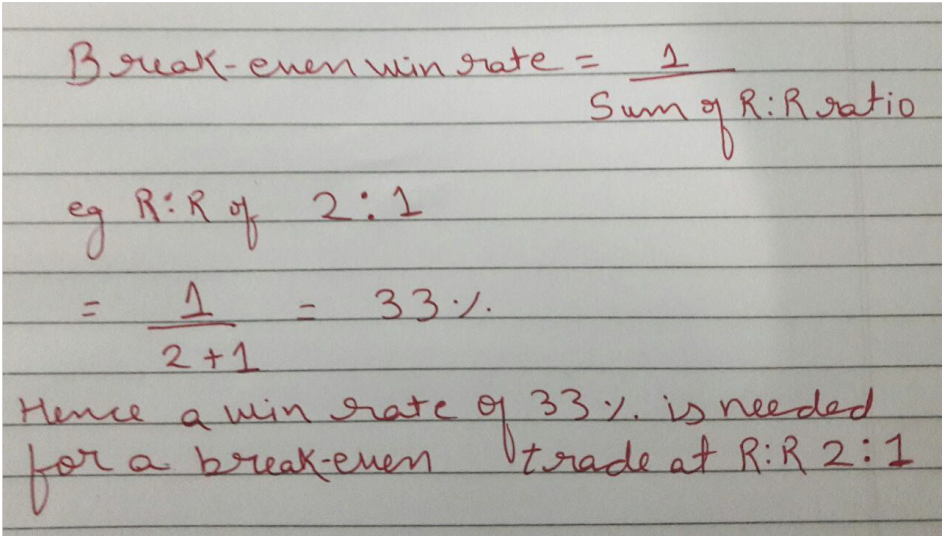 Break-even win rate = 1
Sum of R:R ratio
eg R:R of 2:1
= 1 = 33%
2+1
Hence a win rate of 33% is needed
for a break-even trade at R:R 2:1